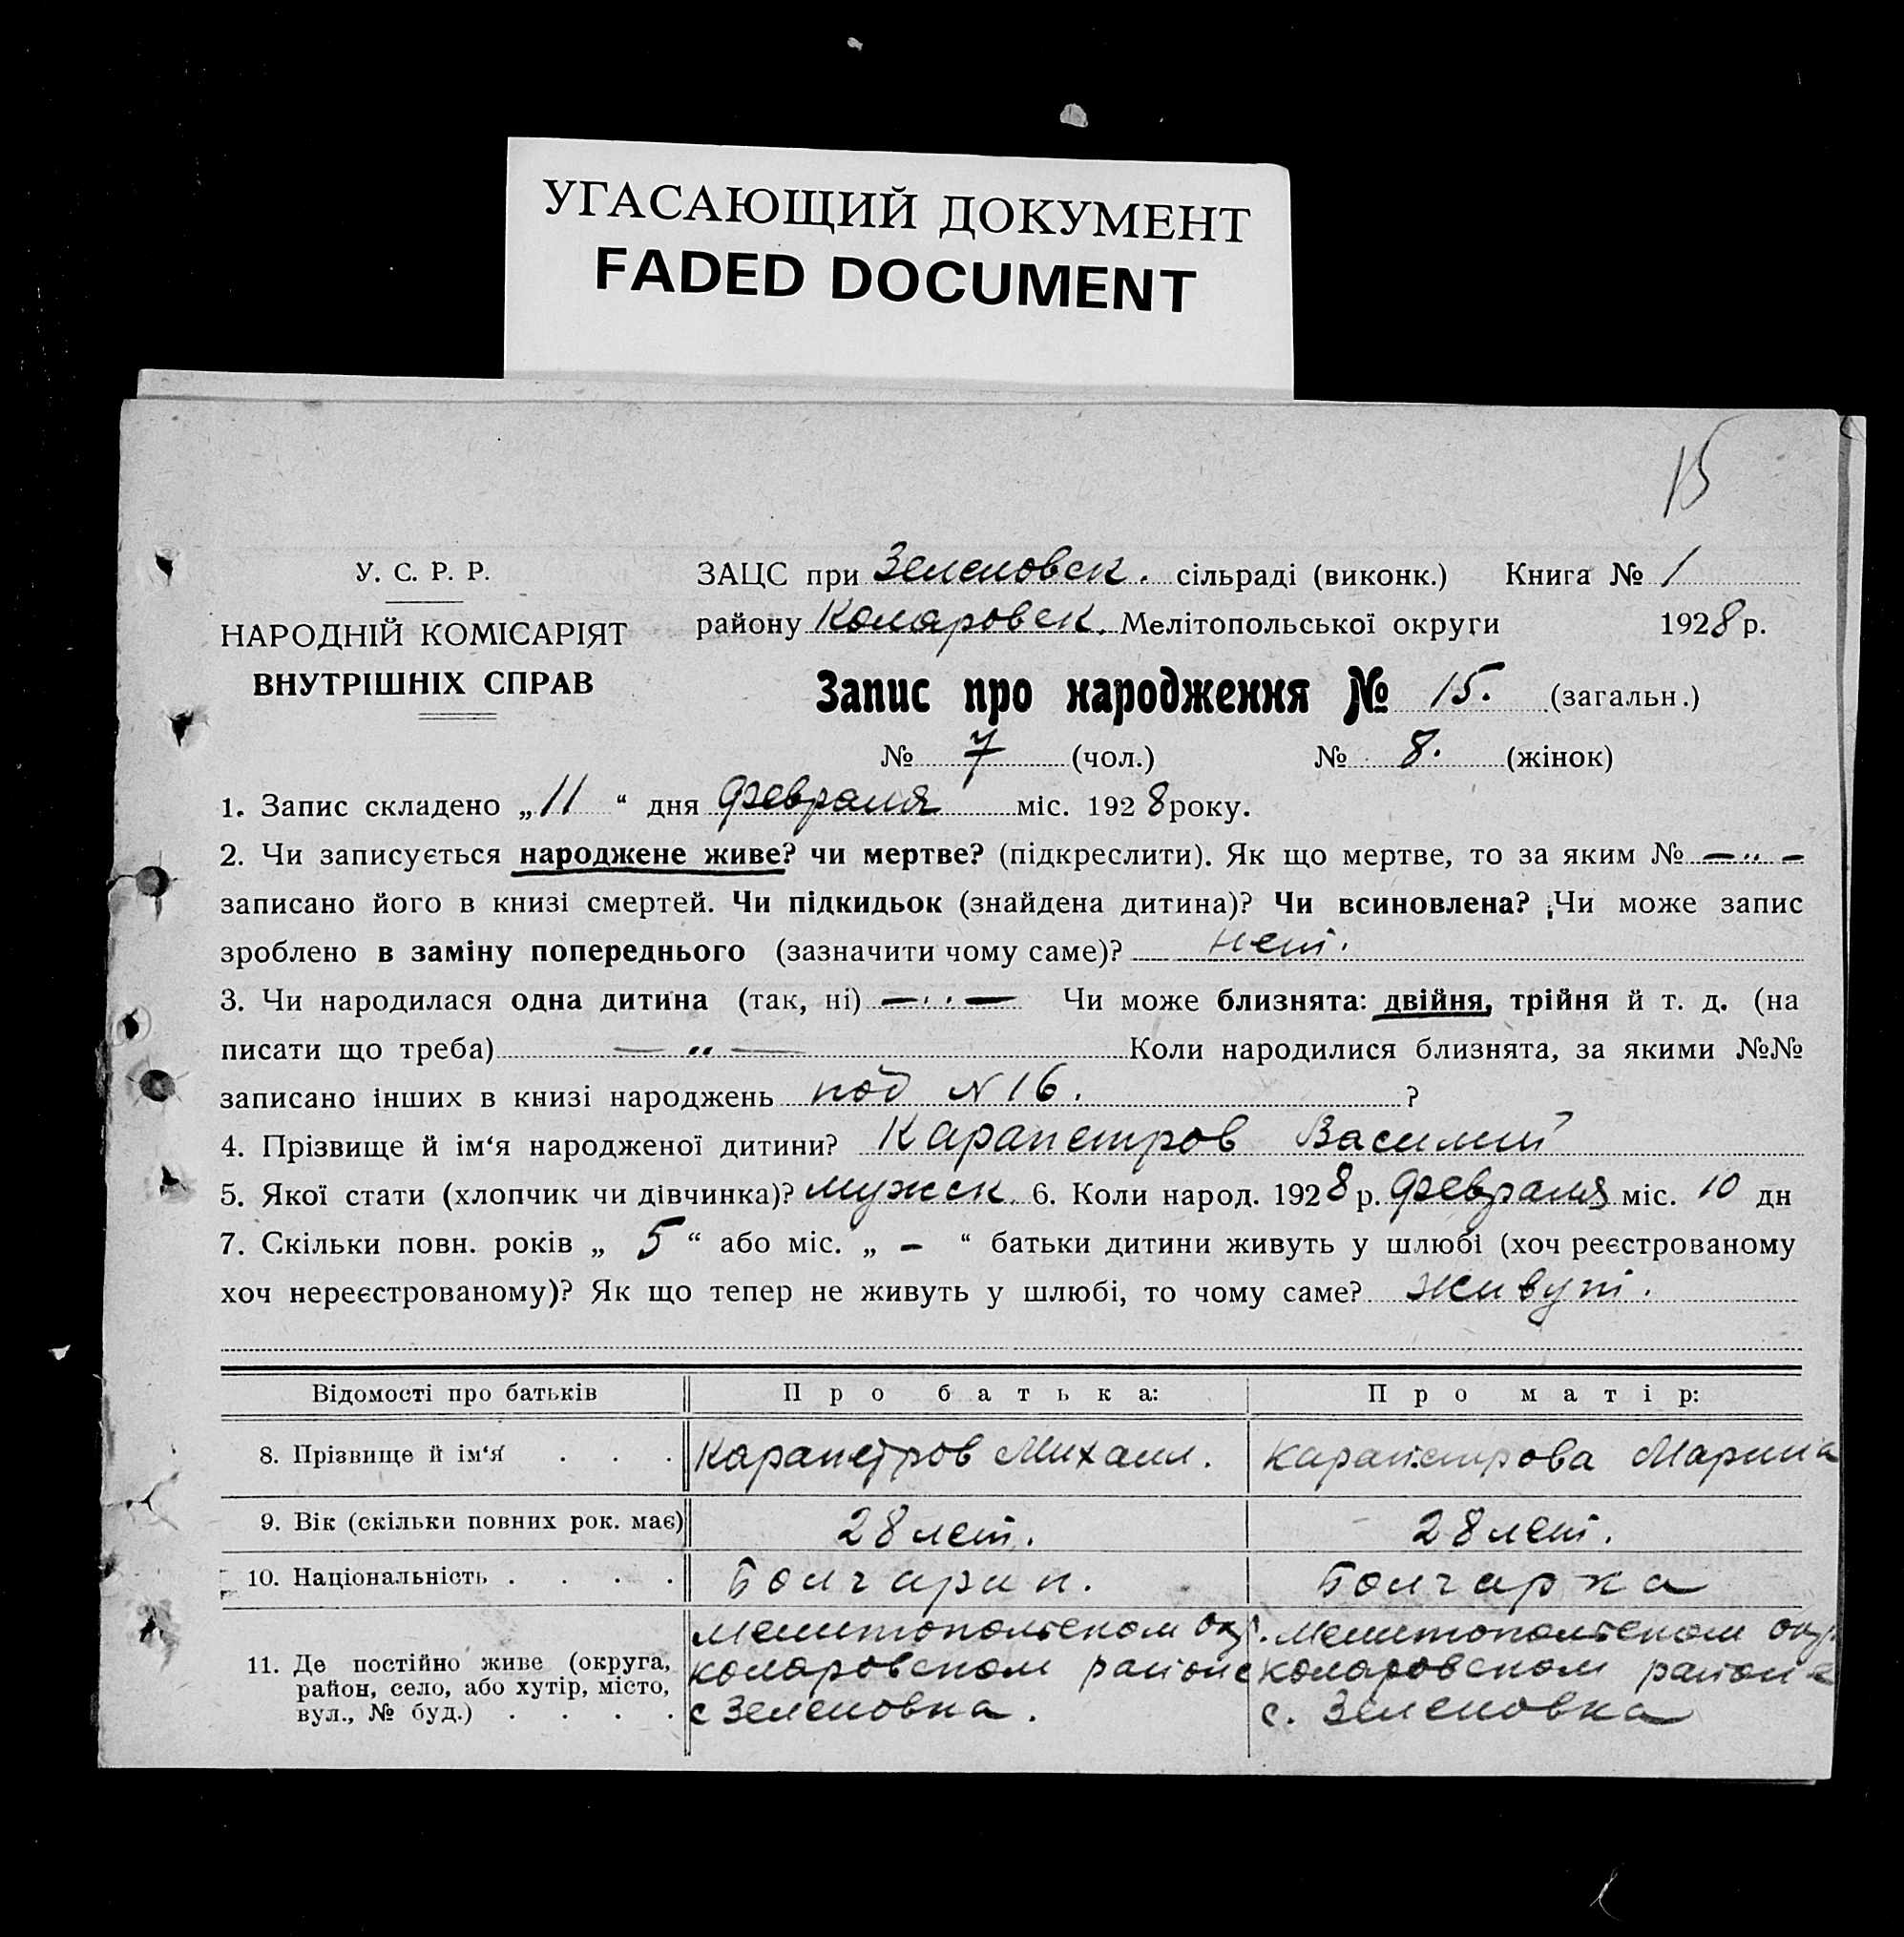 УГАСАЮЩИЙ ДОКУМЕНТ
FADED DOCUMENT
15
У. С. Р. Р.
НАРОДНІЙ КОМІСАРІЯТ
ВНУТРІШНІХ СПРАВ
ЗАЦС при Зеленовск. сільраді (виконк.) Книга № 1
району Коларовск. Мелітопольської округи 1928 р.
Запис про народження № 15. (загальн.)
№ 7 (чол.) № 8. (жінок)
1. Запис складено „11“ дня февраля міс. 1928 року.
2. Чи записується народжене живе? чи мертве? (підкреслити). Як що мертве, то за яким № — „ —
записано його в книзі смертей. Чи підкидьок (знайдена дитина)? Чи всиновлена? Чи може запис
зроблено в заміну попереднього (зазначити чому саме)? нет.
3. Чи народилася одна дитина (так, ні) — „ — Чи може близнята: двійня, трійня й т. д. (на
писати що треба) — „ — Коли народилися близнята, за якими №№
записано інших в книзі народжень под N 16. ?
4. Прізвище й ім‘я народженої дитини? Карапетров Василий
5. Якої стати (хлопчик чи дівчинка)? мужск. 6. Коли народ. 1928 р. февраля міс. 10 дн
7. Скільки повн. років „ 5 “ або міс. „ – “ батьки дитини живуть у шлюбі (хоч реєстрованому
хоч нереєстрованому)? Як що тепер не живуть у шлюбі, то чому саме? живут.
Відомості про батьків Про батька: Про матір:
8. Прізвище й ім‘я . . . Карапетров Михаил. Карапетрова Марина
9. Вік (скільки повних рок. має) 28 лет. 28 лет.
10. Національність . . . . Болгарин. Болгарка
11. Де постійно живе (округа, район, село, або хутір, місто, вул., № буд.) . . . .
Мелитопольском окр. коларовском районе с Зеленовка.
Мелитопольском окр. коларовском районе с. Зеленовка